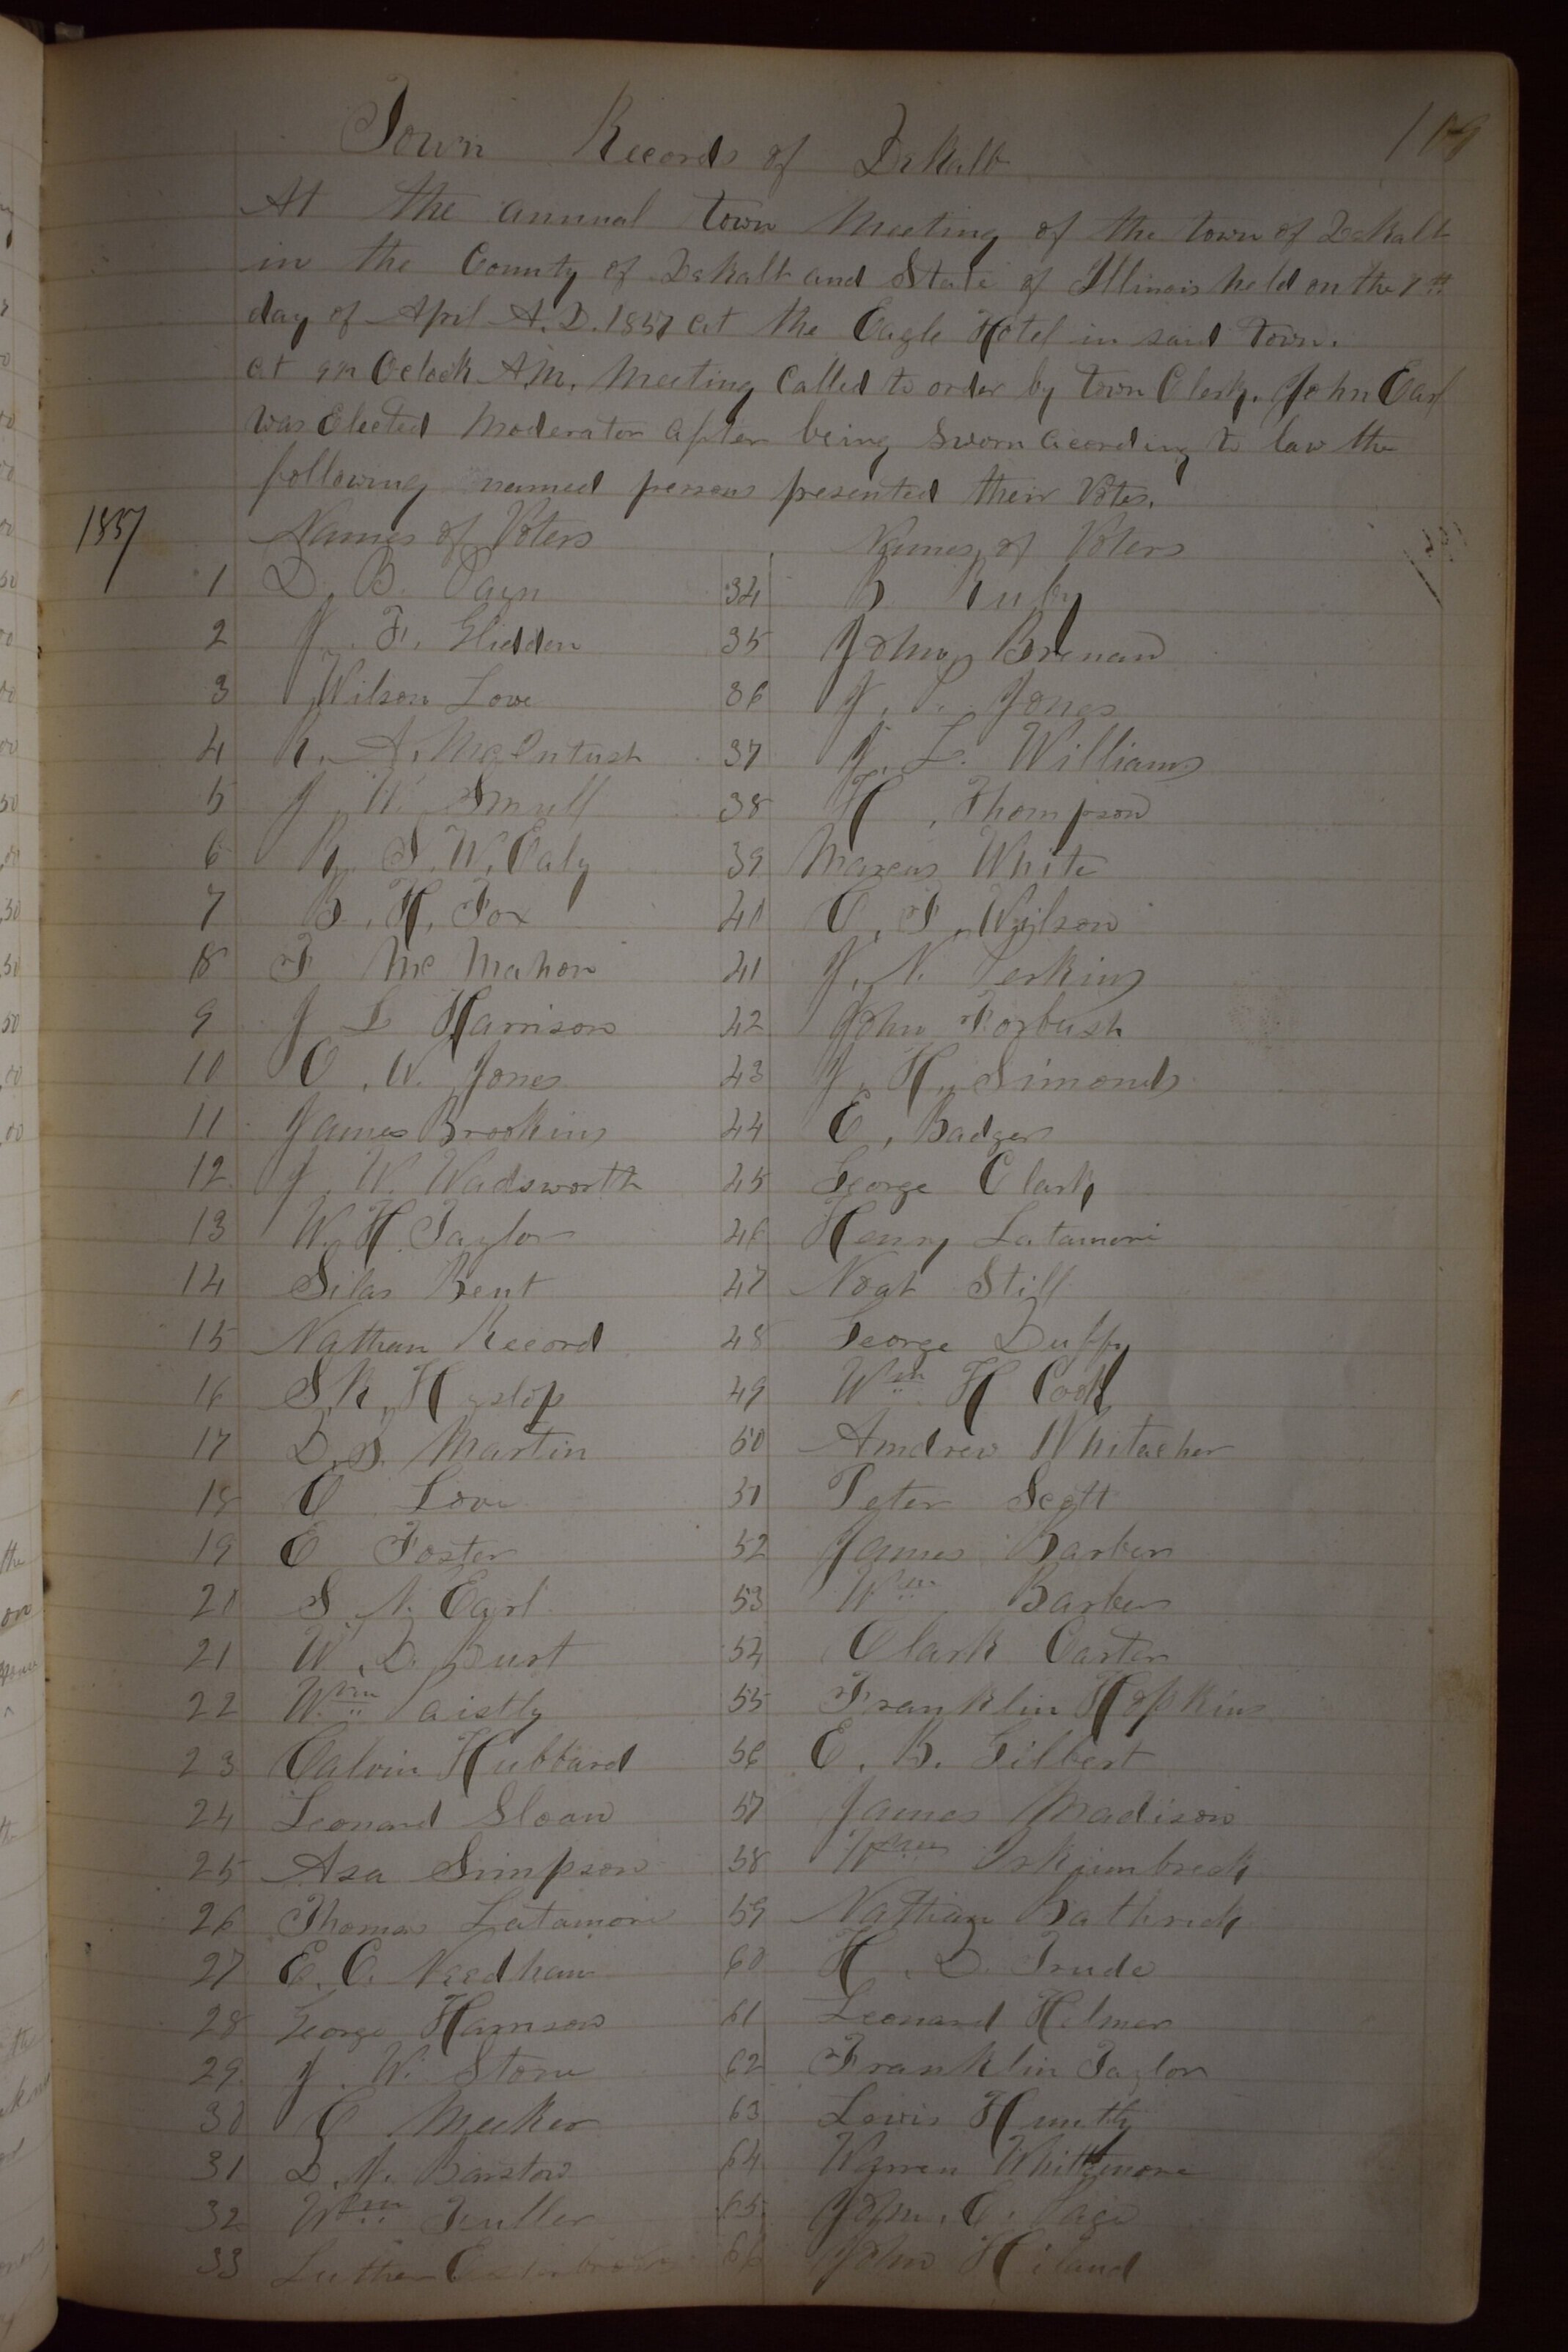 109
Town Records of DeKalb
At the annual town Meeting of the town of DeKalb
in the County of DeKalb and State of Illinois held on the 7th
day of April A.D. 1857 at the Eagle Hotel in said Town.
at 9 Oclock AM. Meeting Called to order by town Clerk. John Earl
was Elected Moderator after being sworn acording to law the
following named persons presented their Votes.
1857
Names of Voters Names of Voters
1 D. B. 34 B Ruby
2 J. F. Glidden 35 John Brenan
3 Wilson Love 36 J. Jones
4 A. McIntush 37 J. L. Williams
5 J. W. Small 38 H. Thompson
6 R. S. W. Ealy 39 Marcus White
7 B. H. Fox 40 C. F. Wilson
8 F Mc Mahon 41 J. N. Perkins
9 J L Harrison 42 John Forbush
10 O. W. Jones 43 J. H. Simonds
11 James Brookins 44 E. Badger
12 J. W. Wadsworth 45 George Clark
13 W. H. Taylor 46 Henry Latamore
14 Silas Bent 47 Noah Still
15 Nathan Record 48 George Duffy
16 S. K. Hyslop 49 Wm H Cook
17 D. D. Martin 50 Amdrew Whitacher
18 O Love 51 Peter Scott
19 E Foster 52 James Barber
20 S. N. Earl 53 Wm Barber
21 W. D. Burt 54 Clark Carter
22 Wm Paistly 55 Franklin Hopkins
23 Calvin Hubbard 56 E. B. Gilbert
24 Leonard Sloan 57 James Madison
25 Asa Simpson 58 Wm
26 Thomas Latamore 59 Nathan Bathrick
27 E. C. Needham 60 H. D. Trude
28 George Harrison 61 Leonard Helmer
29 J. W. Stone 62 Franklin Taylor
30 C Meeker 63 Lewis Huntly
31 D. Barstow 64 Warren Whittemore
32 Wm Fuller 65 John. C. Page
33 Luther 66 John Hiland